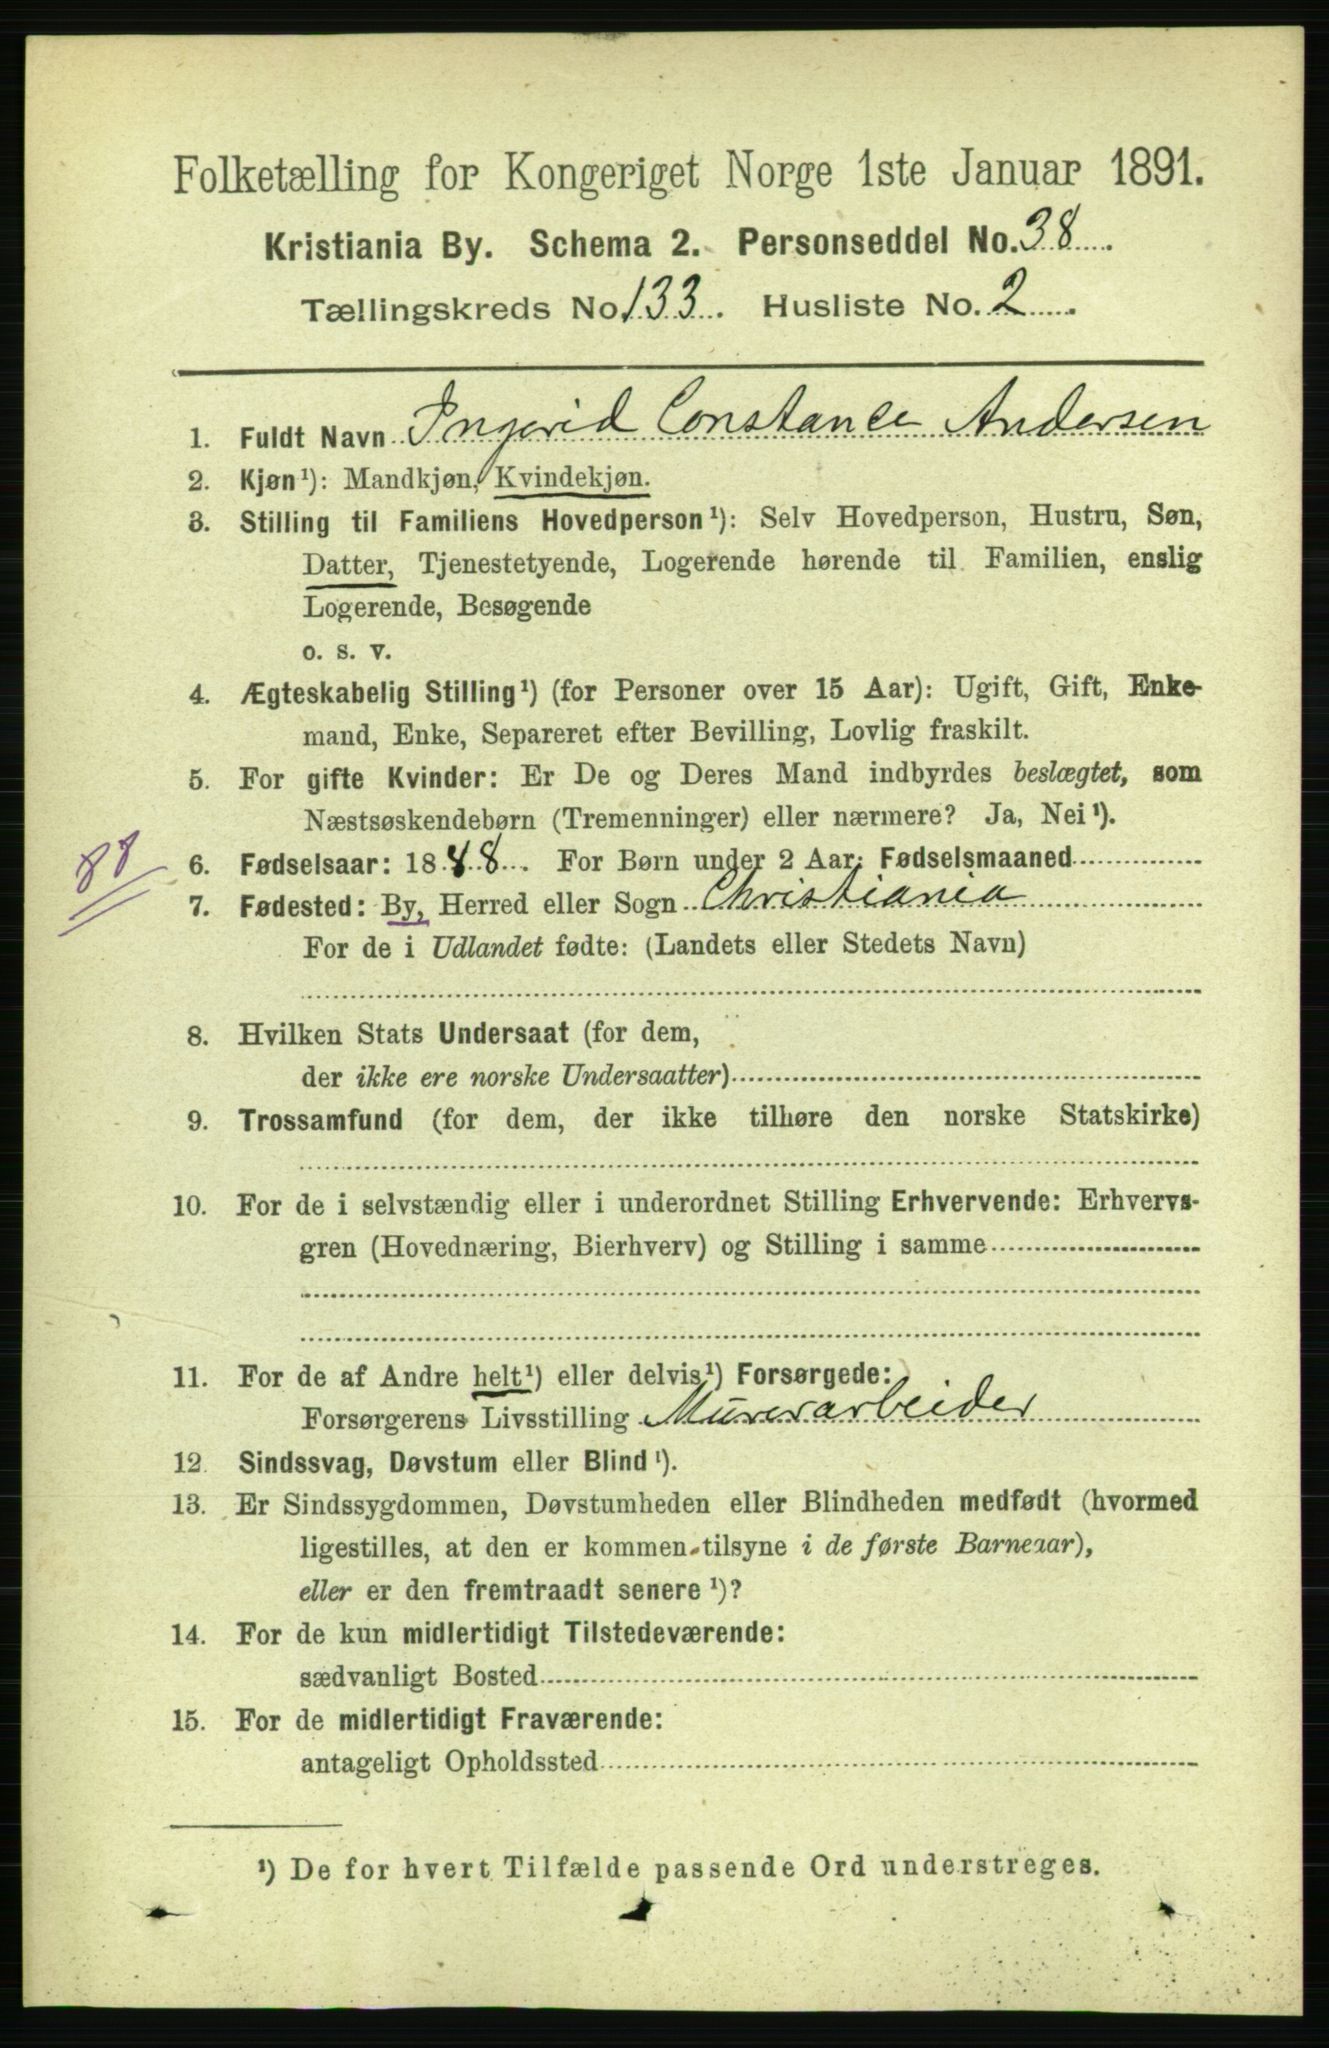 Folketælling for Kongeriget Norge 1ste Januar 1891.
Kristiania By. Schema 2. Personseddel No. 38
Tællingskreds No. 133. Husliste No. 2
1. Fuldt Navn Ingerid Constance Andersen
2. Kjøn¹): Mandkjøn, Kvindekjøn.
3. Stilling til Familiens Hovedperson¹): Selv Hovedperson, Hustru, Søn,
Datter, Tjenestetyende, Logerende hørende til Familien, enslig
Logerende, Besøgende
o. s. v.
4. Ægteskabelig Stilling¹) (for Personer over 15 Aar): Ugift, Gift, Enke-
mand, Enke, Separeret efter Bevilling, Lovlig fraskilt.
5. For gifte Kvinder: Er De og Deres Mand indbyrdes beslægtet, som
Næstsøskendebørn (Tremenninger) eller nærmere? Ja, Nei¹).
88
6. Fødselsaar: 1888. For Børn under 2 Aar: Fødselsmaaned
7. Fødested: By, Herred eller Sogn Christiania
For de i Udlandet fødte: (Landets eller Stedets Navn)
8. Hvilken Stats Undersaat (for dem,
der ikke ere norske Undersaatter)
9. Trossamfund (for dem, der ikke tilhøre den norske Statskirke)
10. For de i selvstændig eller i underordnet Stilling Erhvervende: Erhvervs-
gren (Hovednæring, Bierhverv) og Stilling i samme
11. For de af Andre helt¹) eller delvis¹) Forsørgede:
Forsørgerens Livsstilling Murerarbeider
12. Sindssvag, Døvstum eller Blind¹).
13. Er Sindssygdommen, Døvstumheden eller Blindheden medfødt (hvormed
ligestilles, at den er kommen tilsyne i de første Barneaar),
eller er den fremtraadt senere¹)?
14. For de kun midlertidigt Tilstedeværende:
sædvanligt Bosted
15. For de midlertidigt Fraværende:
antageligt Opholdssted
¹) De for hvert Tilfælde passende Ord understreges.